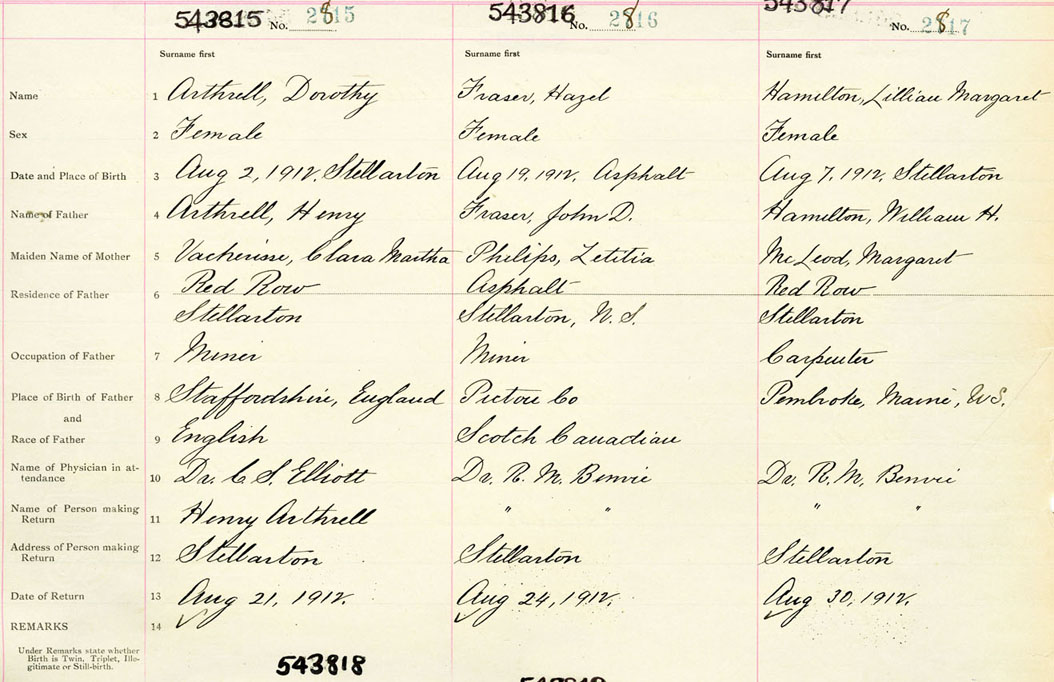 543815 No. 2815 543816 No. 2816 543817 No. 2817
Surname first Surname first Surname first
Name 1 Arthrell, Dorothy Fraser, Hazel Hamilton, Lillian Margaret
Sex 2 Female Female Female
Date and Place of Birth 3 Aug 2, 1912. Stellarton Aug 19, 1912. Asphalt Aug 7, 1912. Stellarton
Name of Father 4 Arthrell, Henry Fraser, John D. Hamilton, William H.
Maiden Name of Mother 5 Vacherisse, Clara Martha Philips, Letitia McLeod, Margaret
Residence of Father 6 Red Row Asphalt Red Row
Stellarton Stellarton, N.S. Stellarton
Occupation of Father 7 Miner Miner Carpenter
Place of Birth of Father 8 Staffordshire, England Pictou Co Pembroke, Maine, U.S.
and
Race of Father 9 English Scotch Canadian
Name of Physician in at-
tendance 10 Dr. C S. Elliott Dr. R. M. Benvie Dr. R. M. Benvie
Name of Person making
Return 11 Henry Arthrell " " " "
Address of Person making
Return 12 Stellarton Stellarton Stellarton
Date of Return 13 Aug 21, 1912. Aug 24, 1912. Aug 30, 1912.
REMARKS 14
Under Remarks state whether
Birth is Twin, Triplet, Ille-
gitimate or Still-birth.
543818